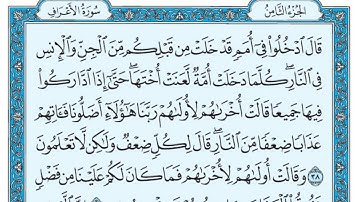 سُورَةُ الأَعْرَافِ الجُزْءُ الثَّامِنُ
قَالَ ٱدْخُلُوا۟ فِىٓ أُمَمٍ قَدْ خَلَتْ مِن قَبْلِكُم مِّنَ ٱلْجِنِّ وَٱلْإِنسِ
فِى ٱلنَّارِ ۖ كُلَّمَا دَخَلَتْ أُمَّةٌ لَّعَنَتْ أُخْتَهَا ۖ حَتَّىٰٓ إِذَا ٱدَّارَكُوا۟
فِيهَا جَمِيعًا قَالَتْ أُخْرَىٰهُمْ لِأُولَىٰهُمْ رَبَّنَا هَٰٓؤُلَآءِ أَضَلُّونَا فَـَٔاتِهِمْ
عَذَابًا ضِعْفًا مِّنَ ٱلنَّارِ ۖ قَالَ لِكُلٍّ ضِعْفٌ وَلَٰكِن لَّا تَعْلَمُونَ
٣٨ وَقَالَتْ أُولَىٰهُمْ لِأُخْرَىٰهُمْ فَمَا كَانَ لَكُمْ عَلَيْنَا مِن فَضْلٍ